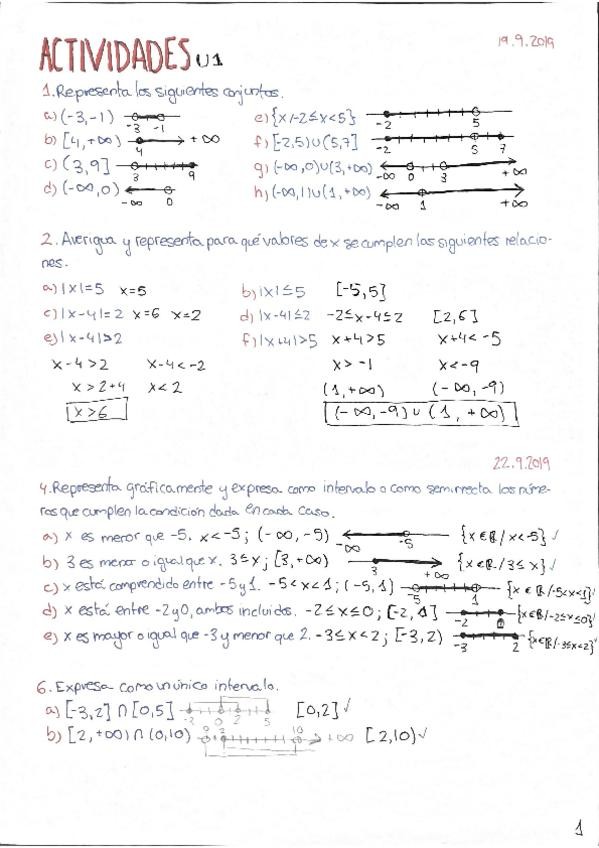 ACTIVIDADES U1
19.9.2019
1. Representa los siguientes conjuntos.
a) (-3,-1) -3 -1
b) [4,+∞) 4 +∞
c) (3,9] 3 9
d) (-∞,0) -∞ 0
e) {x/-2≤x<5} -2 5
f) [-2,5)∪(5,7] -2 5 7
g) (-∞,0)∪(3,+∞) -∞ 0 3 +∞
h) (-∞,1)∪(1,+∞) -∞ 1 +∞
2. Averigua y representa para qué valores de x se cumplen las siguientes relacio-
nes.
a) |x|=5 x=5
b) |x|≤5 [-5,5]
c) |x-4|=2 x=6 x=2
d) |x-4|≤2 -2≤x-4≤2 [2,6]
e) |x-4|>2
x-4>2 x-4<-2
x>2+4 x<2
x>6
f) |x+4|>5 x+4>5 x+4<-5
x>-1 x<-9
(1,+∞) (-∞,-9)
(-∞,-9)∪(1,+∞)
22.9.2019
4. Representa gráficamente y expresa como intervalo o como semirrecta los núme-
ros que cumplen la condición dada en cada caso.
a) x es menor que -5. x<-5; (-∞,-5) -∞ -5 {x∈ℝ/x<-5} ✓
b) 3 es menor o igual que x. 3≤x; [3,+∞) 3 +∞ {x∈ℝ/3≤x} ✓
c) x está comprendido entre -5 y 1. -5<x<1; (-5,1) -5 1 {x∈ℝ/-5<x<1} ✓
d) x está entre -2 y 0, ambos incluidos. -2≤x≤0; [-2,1] -2 0 {x∈ℝ/-2≤x≤0} ✓
e) x es mayor o igual que -3 y menor que 2. -3≤x<2; [-3,2) -3 2 {x∈ℝ/-3≤x<2} ✓
6. Expresa como un único intervalo.
a) [-3,2]∩[0,5] -3 0 2 5 [0,2] ✓
b) [2,+∞)∩(0,10) 0 2 10 +∞ [2,10) ✓
1